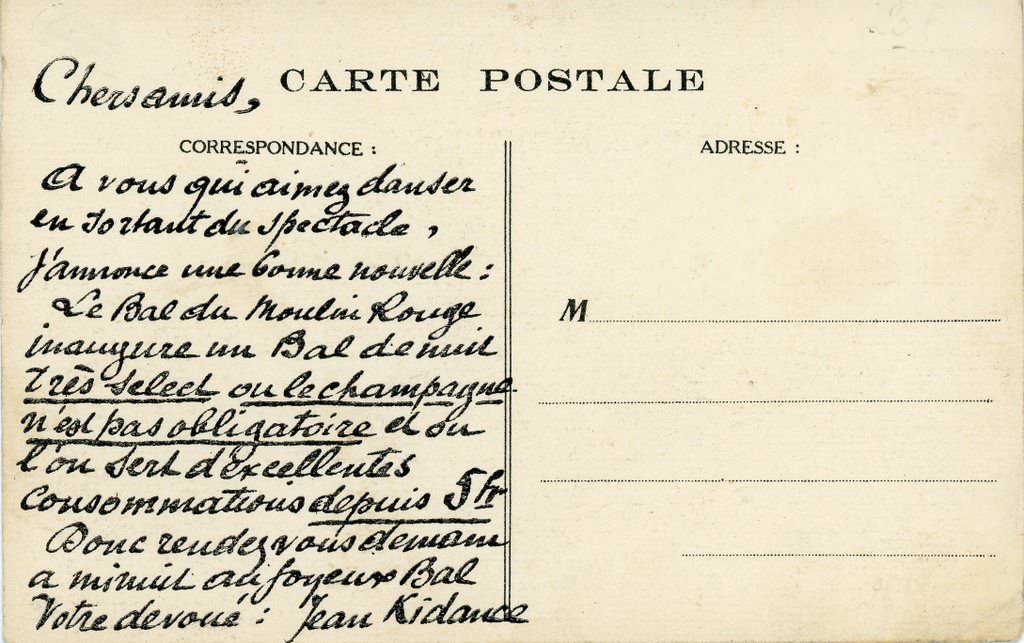 Chers amis,
CARTE POSTALE
CORRESPONDANCE :
ADRESSE :
A vous qui aimez danser
en sortant du spectacle,
j'annonce une bonne nouvelle :
Le Bal du Moulin Rouge
inaugure un Bal de nuit
très select ou le champagne
n'est pas obligatoire et ou
l'on sert d'excellentes
consommations depuis 5 fr
Donc rendez vous demain
a minuit au joyeux Bal
Votre devoué : Jean Kidance
M